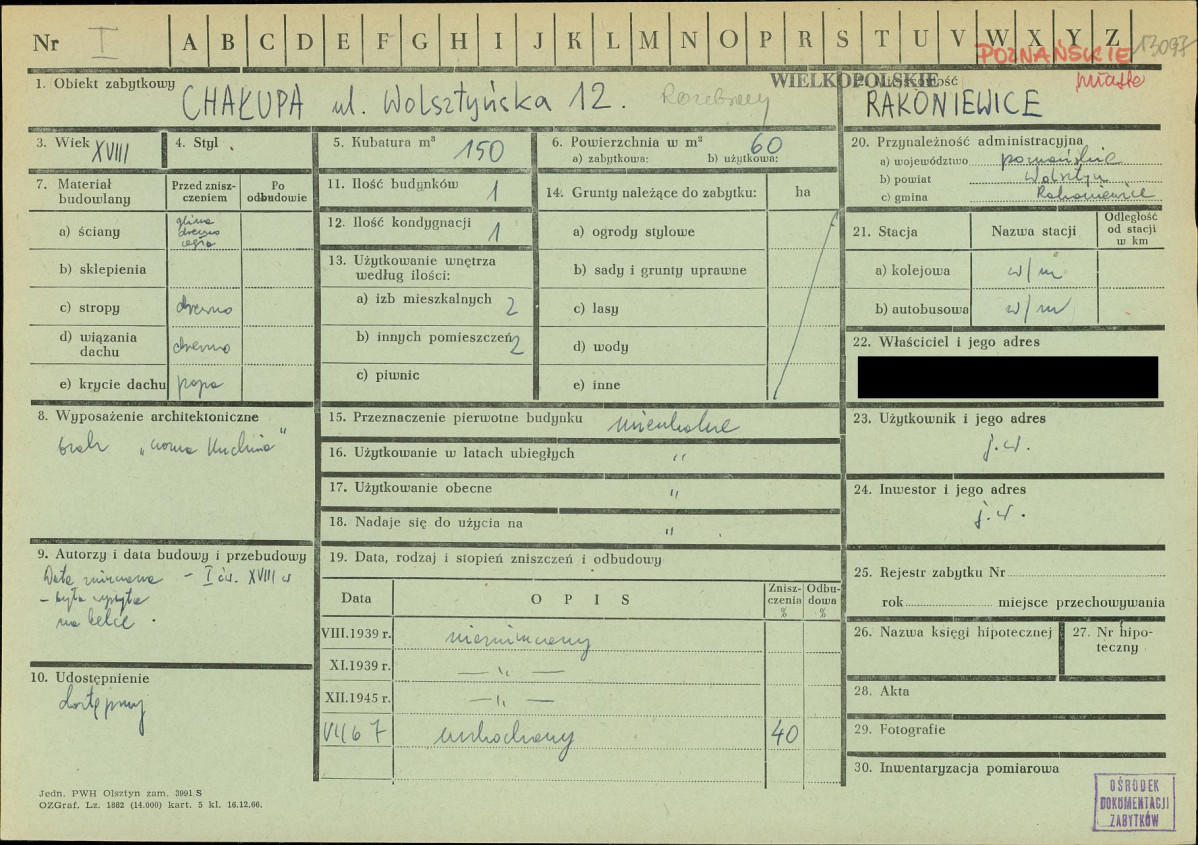 Nr I A B C D E F G H I J K L M N O P R S T U V W X Y Z 13097
POZNAŃSKIE
miasto
WIELKOPOLSKIE
1. Obiekt zabytkowy CHAŁUPA ul. Wolsztyńska 12. Rozebrany
RAKONIEWICE
3. Wiek XVIII
4. Styl
5. Kubatura m³ 150
6. Powierzchnia w m² 60
a) zabytkowa: b) użytkowa:
7. Materiał budowlany
Przed znisz-
czeniem
Po
odbudowie
a) ściany glina
drewno
cegła
b) sklepienia
c) stropy drewno
d) wiązania
dachu drewno
e) krycie dachu papa
8. Wyposażenie architektoniczne
brak "czarna kuchnia"
9. Autorzy i data budowy i przebudowy
Data - I ćw. XVIII w
- była wyryta
na belce.
10. Udostępnienie
dostępny
11. Ilość budynków 1
12. Ilość kondygnacji 1
13. Użytkowanie wnętrza
według ilości:
a) izb mieszkalnych 2
b) innych pomieszczeń 2
c) piwnic
14. Grunty należące do zabytku: ha
a) ogrody stylowe
b) sady i grunty uprawne
c) lasy
d) wody
e) inne
15. Przeznaczenie pierwotne budynku mieszkalne
16. Użytkowanie w latach ubiegłych "
17. Użytkowanie obecne "
18. Nadaje się do użycia na "
19. Data, rodzaj i stopień zniszczeń i odbudowy
Data OPIS
Znisz-
czenia
%
Odbu-
dowa
%
VIII.1939 r. niezniszczony
XI.1939 r. — " —
XII.1945 r. — " —
VI/67 uszkodzony 40
20. Przynależność administracyjna
a) województwo poznańskie
b) powiat Wolsztyn
c) gmina Rakoniewice
21. Stacja Nazwa stacji
Odległość
od stacji
w km
a) kolejowa w/m
b) autobusowa w/m
22. Właściciel i jego adres
23. Użytkownik i jego adres
j.w.
24. Inwestor i jego adres
j.w.
25. Rejestr zabytku Nr
rok miejsce przechowywania
26. Nazwa księgi hipotecznej
27. Nr hipo-
teczny
28. Akta
29. Fotografie
30. Inwentaryzacja pomiarowa
Jedn. PWH Olsztyn zam. 3991 S
OZGraf. Lz. 1882 (14.000) kart. 5 kl. 16.12.66.
OŚRODEK
DOKUMENTACJI
ZABYTKÓW